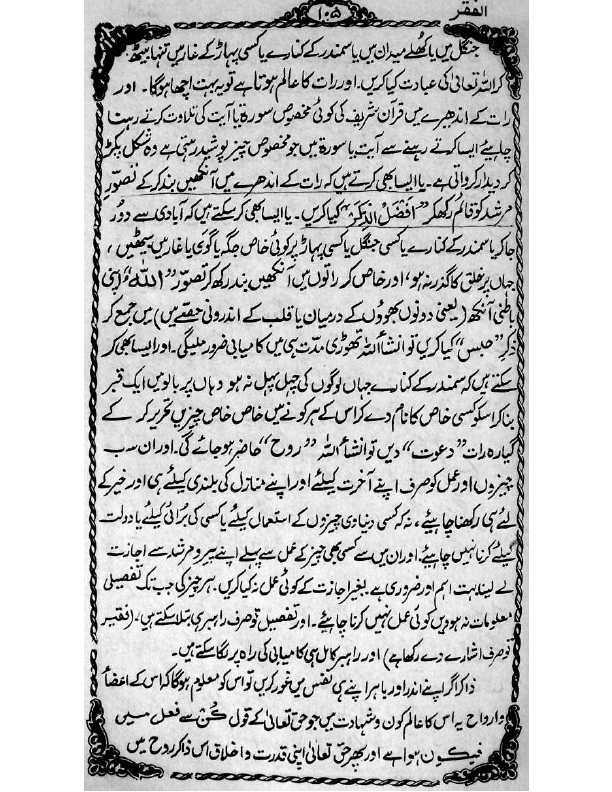 الفقر
۱۰۵
جنگل میں یا کھلے میدان میں یا سمندر کے کنارے یا کسی پہاڑ کے غار میں تنہا بیٹھ
کر اللہ تعالیٰ کی عبادت کیا کریں۔ اور رات کا عالم ہوتا ہے تو یہ بہت اچھا ہوگا۔ اور
رات کے اندھیرے میں قرآن شریف کی کوئی مخصوص سورۃ یا آیت کی تلاوت کرتے رہنا
چاہیئے ایسا کرتے رہنے سے آیت یا سورۃ میں جو مخصوص چیز پوشیدہ رہتی ہے وہ شکل پکڑ
کر دیدار کرواتی ہے۔ یا ایسا بھی کرتے ہیں کہ رات کے اندھیرے میں آنکھیں بند کر کے تصوّرِ
مرشد کو قائم رکھکر "افضل الذکر" کیا کریں۔ یا ایسا بھی کر سکتے ہیں کہ آبادی سے دور
جا کر یا سمندر کے کنارے یا کسی جنگل یا کسی پہاڑ پر کوئی خاص جگہ یا گوی یا غار میں بیٹھیں،
جہاں پر خلق کا گذر نہ ہو، اور خاص کر راتوں میں آنکھیں بند رکھ کر تصوّر "اللہ" اپنی
باطنی آنکھ (یعنی دونوں بھوؤں کے درمیان یا قلب کے اندرونی حصّے میں) میں جمع کر
ذکر "حبس" کیا کریں تو انشأاللہ تھوڑی مدّت ہی میں کامیابی ضرور ملیگی۔ اور ایسا بھی کر
سکتے ہیں کہ سمندر کے کنارے جہاں لوگوں کی چہل پہل نہ ہو وہاں پر بالو میں ایک قبر
بنا کر اسکو کسی خاص کا نام دے کر اس کے ہر کونے میں خاص خاص چیزیں تحریر کر کے
گیارہ رات "دعوت" دیں تو انشأ اللہ "روح" حاضر ہو جائے گی۔ اور ان سب
چیزوں اور عمل کو صرف اپنے آخرت کیلئے اور اپنے منازل کی بلندی کیلئے ہی اور خیر کے
لئے ہی رکھنا چاہیئے، نہ کہ کسی دنیاوی چیزوں کے استعمال کیلئے یا کسی کی برائی کیلئے یا دولت
کیلئے کرنا نہیں چاہیئے اور ان میں سے کسی بھی چیز کے عمل سے پہلے اپنے پیر و مرشد سے اجازت
لے لینا بہت اہم اور ضروری ہے۔ بغیر اجازت کے کوئی عمل نہ کیا کریں۔ ہر چیز کی جب تک تفصیلی
معلومات نہ ہوویں کوئی عمل نہیں کرنا چاہیئے۔ اور تفصیل تو صرف راہبر ہی بتلا سکتے ہیں، (فقیر
تو صرف اشارے دے رکھا ہے) اور راہبر کامل ہی کامیابی کی راہ پر لگا سکتے ہیں۔
ذاکر اگر اپنے اندر اور باہر اپنے ہی نفس میں غور کریں تو اس کو معلوم ہوگا کہ اس کے اعضأ
و ارواح یہ اس کا عالم کون و شہادت میں جو حق تعالیٰ کے قول کُنْ سے فعل میں
فیکون ہوا ہے اور پھر حق تعالیٰ اپنی قدرت و اخلاق اس ذاکر روح میں